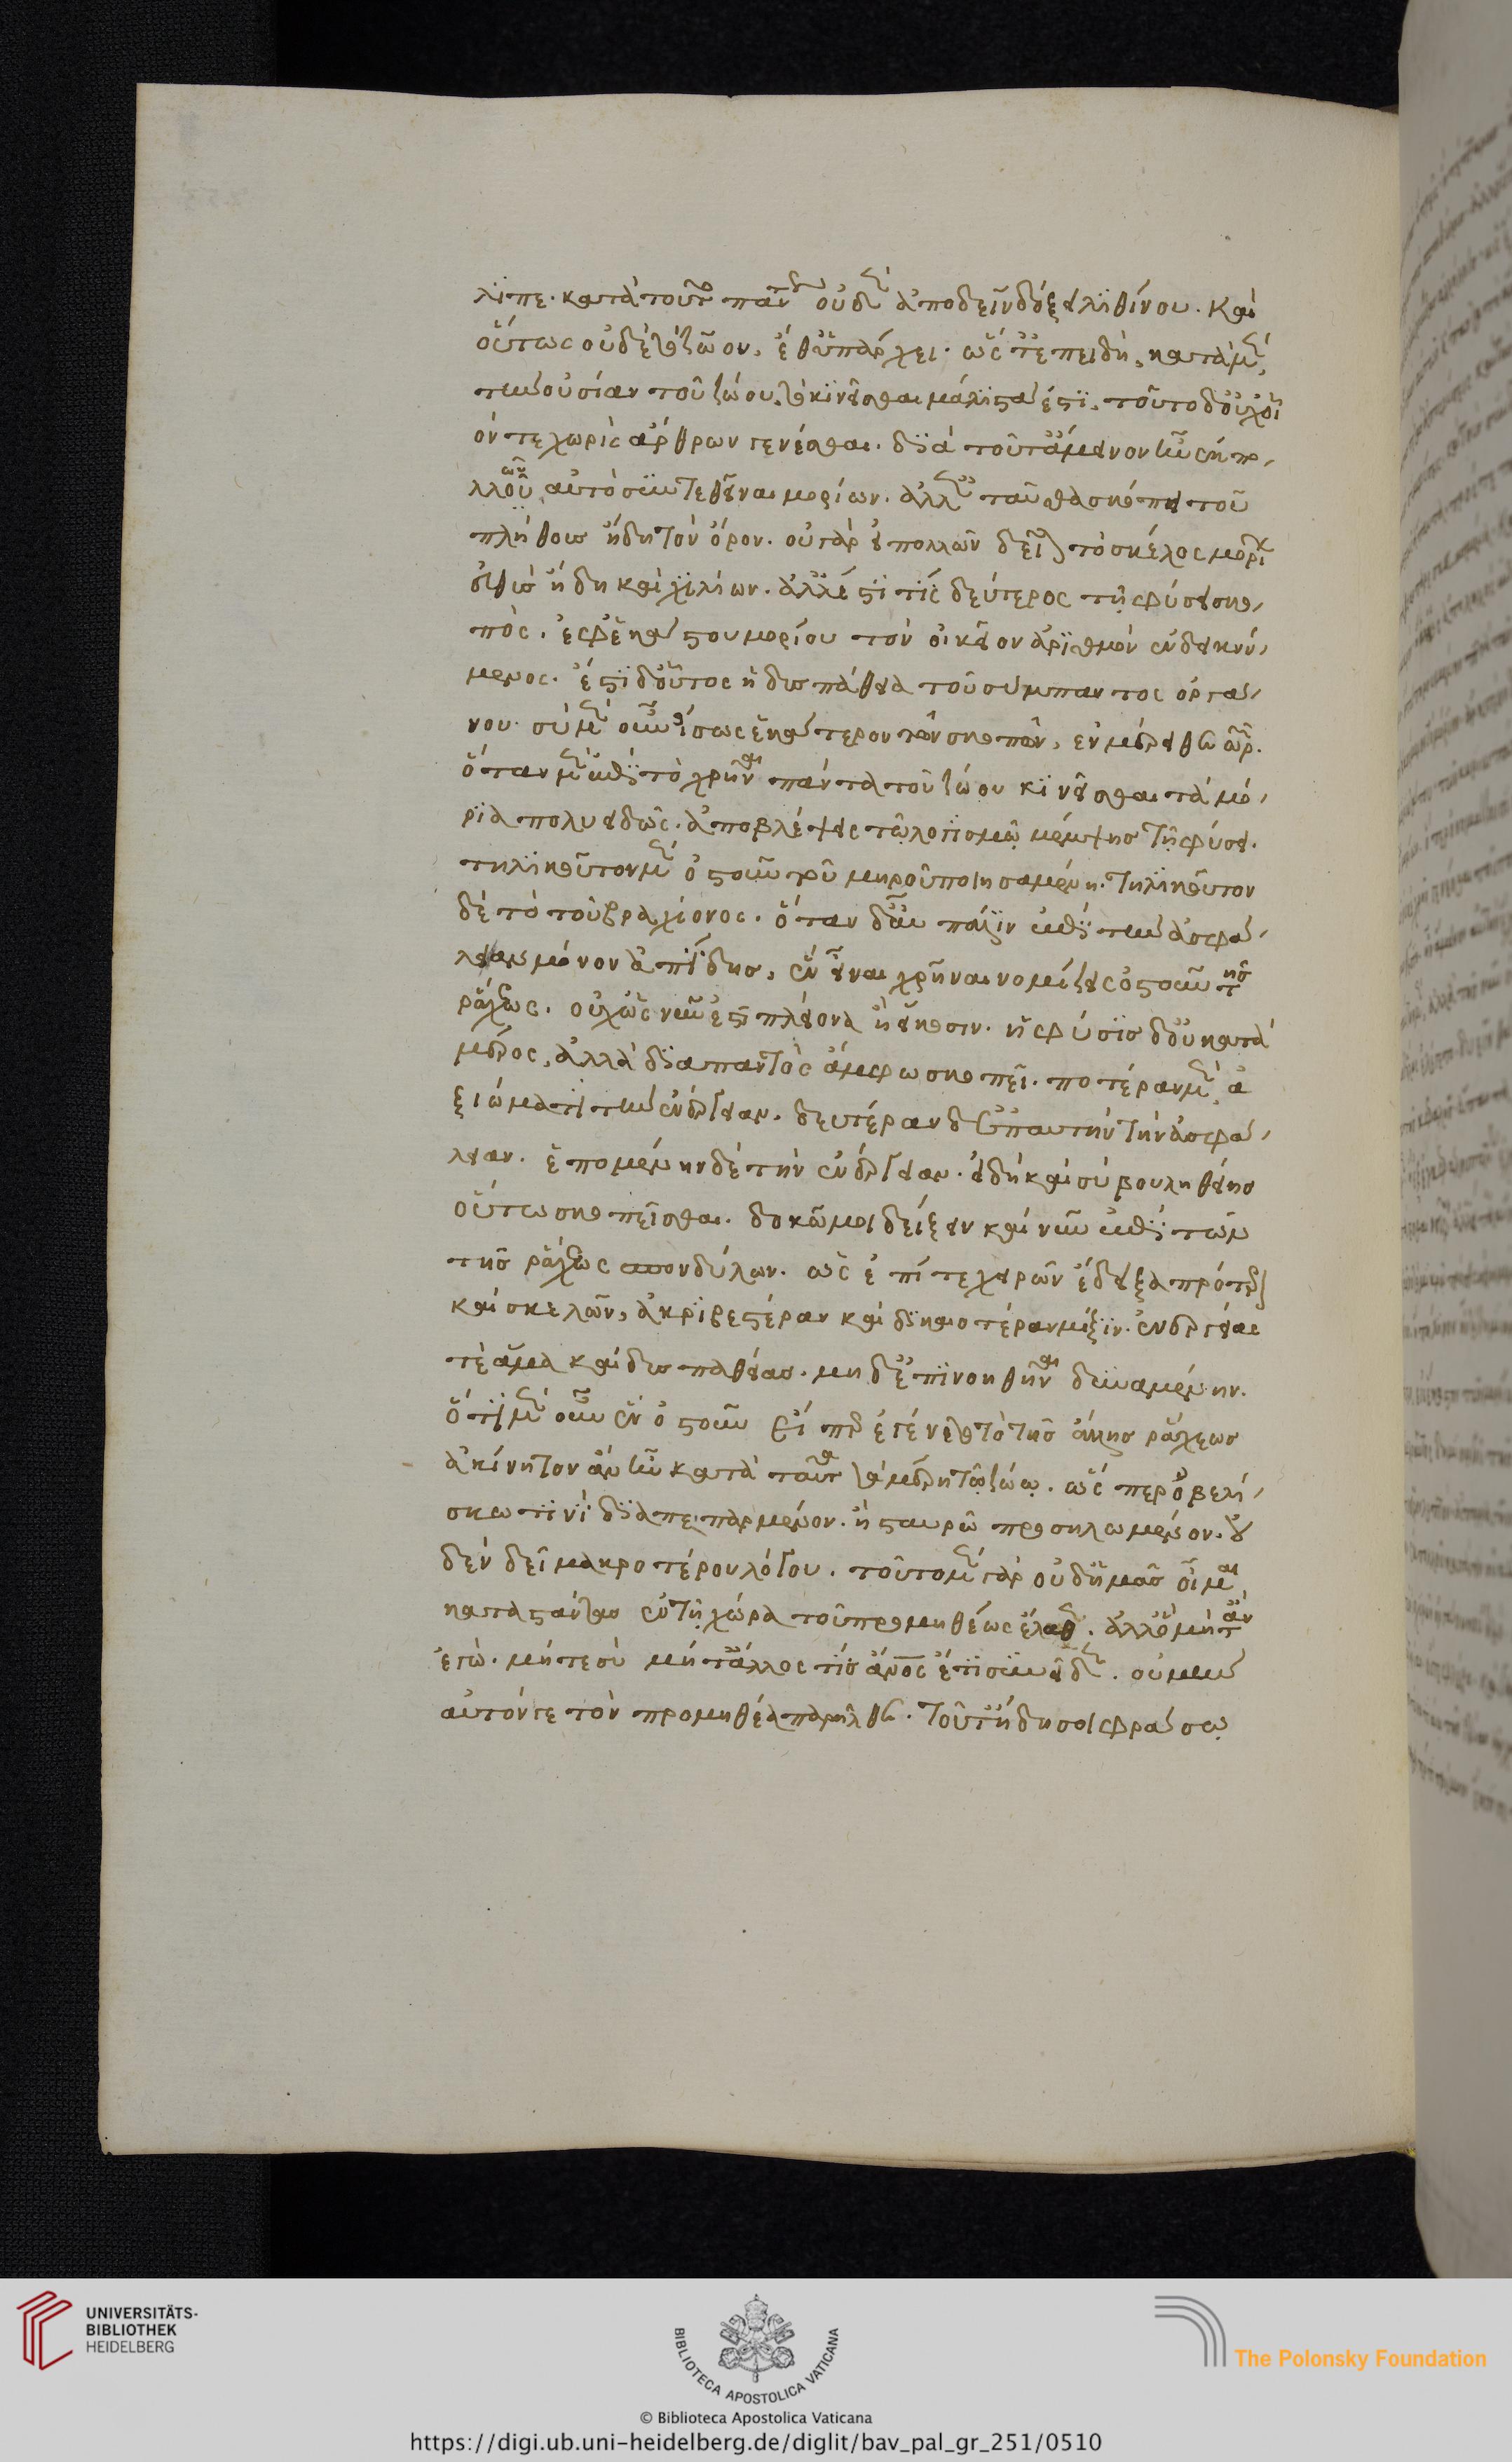 λιπε. κατὰ τοῦτο πᾶν τόδ' οὐδὲν ἀποδεῖν δόξει λιθίνου. καὶ
οὕτως οὐδὲ ζῶον, ἔθ' ὑπάρχει. ὥς τ' ἐπειδὴ, κατὰ μὲν
τὴν οὐσίαν τοῦ ζώου, τὸ κινεῖσθαι μάλιστα ἐστι. τοῦτο δ' οὐχ οἷ
όν τε χωρὶς ἄρθρων γενέσθαι. διὰ τοῦτ' ἄμεινον ἦν ἐκ πο
λλῶν αὐτὸ συντεθεῖναι μορίων. ἀλλ' ἐνταῦθα σκόπει τοῦ
πλήθους ἤδη τὸν ὅρον. οὐ γὰρ εἰ πολλῶν δεῖται τὸ σκέλος μορίων
εὐθὺς ἤδη καὶ χιλίων. ἀλλ' ἔστι τίς δεύτερος τῆς φύσεως σκο
πὸς. ἐφ' ἑκάστου μορίου τὸν οἰκεῖον ἀριθμὸν ἐνδεικνύ
μενος. ἔστι δ' οὗτος ἡ δυσπάθεια τοῦ σύμπαντος ὀργά
νου. σὺ μὲν οὖν ἴσως ἑκάτερον τῶν σκοπῶν, ἐν μέρει θεωρεῖς.
ὅταν μὲν ἐπὶ τὸ χρῆναι πάντα τοῦ ζώου κινεῖσθαι τὰ μό
ρια πολυειδῶς. ἀποβλέψεις τῷ λογισμῷ μέμψης τῇ φύσει.
τηλικοῦτον μὲν ὀστοῦν τοῦ μηροῦ ποιησαμένη. τηλικοῦτον
δὲ τὸ τοῦ βραχίονος. ὅταν δ' αὖ πάλιν ἐπὶ τὴν ἀσφά
λειαν μόνον ἀπίδης, ἓν εἶναι χρῆναι νομίζεις ὀστοῦν τῆς
ῥάχεως. οὐχ ὡς νῦν ἐστι πλείονα ἢ εἴκοσιν. ἡ φύσις δ' οὐ κατὰ
μέρος, ἀλλὰ διαπαντὸς ἄμφω σκοπεῖ. ποτέραν μὲν ἀ
ξιώματι τὴν ἐνέργειαν. δευτέραν δ' ἐπ' αυτὴν τὴν ἀσφά
λειαν. ἑπομένην δὲ τὴν ἐνέργειαν. εἰ δὴ καὶ σὺ βουληθείης
οὕτω σκοπεῖσθαι. δοκῶ μοι δείξειν καὶ νῦν ἐπὶ τῶν
τῆς ῥάχεως σπονδύλων. ὡς ἐπί τε χειρῶν ἔδειξα πρότερον
καὶ σκελῶν, ἀκριβεστέραν καὶ δικαιοτέραν μίξιν. ἐνεργείας
τὲ ἅμα καὶ δυσπαθείας. μηδ' ἐπινοηθῆναι δυναμένην.
ὅτι μὲν οὖν ἓν ὀστοῦν εἴπερ ἐγένετο τὸ τῆς ὅλης ῥάχεως
ἀκίνητον ἂν ἦν κατὰ ταῦτα τὰ μέρη τῷ ζώῳ. ὥς περ ὀβελί
σκω τινὶ διαπεπαρμένον. ἢ σταυρῶ προσηλωμένον. οὐ
δὲν δεῖ μακροτέρου λόγου. τοῦτο μὲν γὰρ οὐδ' ἡμᾶς οἶμαι
καταστάντας ἐν τῇ χώρα τοῦ προμηθέως ἔλαθεν. ἀλλ' οὐ μήτ' ἂν
ἐγὼ. μήτε σὺ μήτ' ἄλλος τίς ἄνος ἔτι συνεῖδεν. οὐ μὴν
αὐτόν γε τὸν προμηθέα παρῆλθεν. τοῦτ' ἤδη σοι φράσω

UNIVERSITÄTS-
BIBLIOTHEK
HEIDELBERG
BIBLIOTECA APOSTOLICA VATICANA
The Polonsky Foundation
© Biblioteca Apostolica Vaticana
https://digi.ub.uni-heidelberg.de/diglit/bav_pal_gr_251/0510